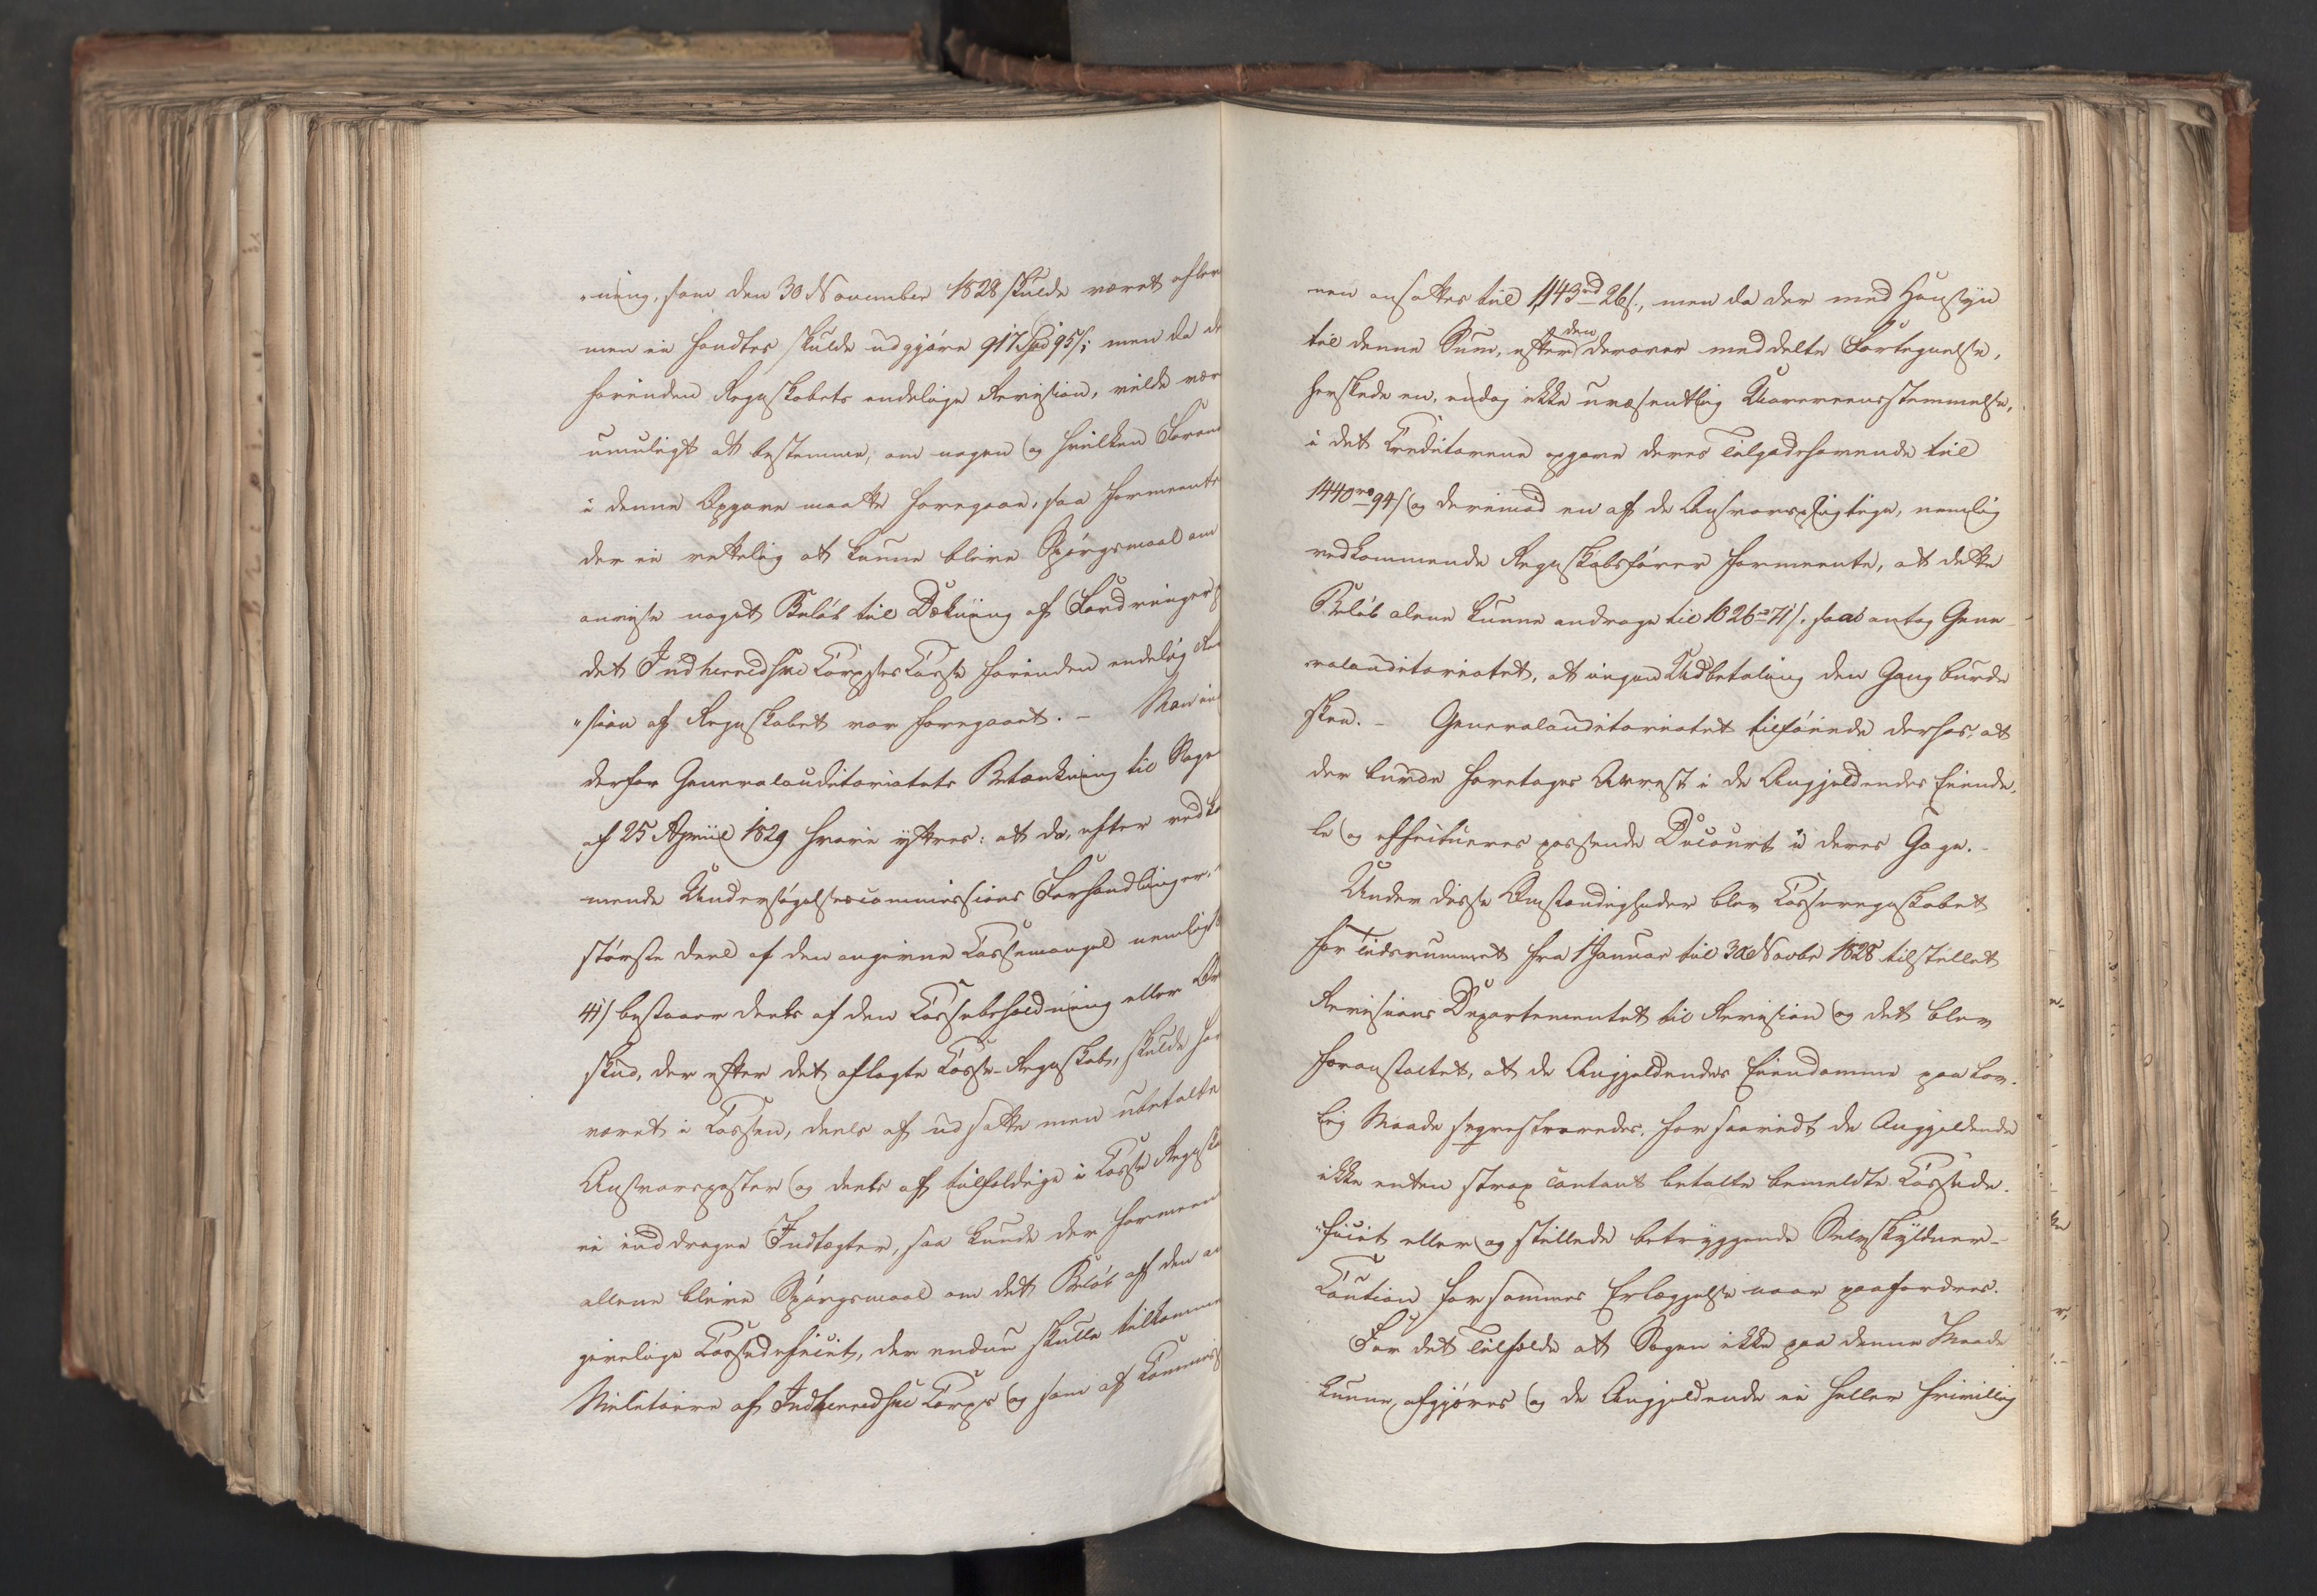 "ning, som den 30 November 1828 skulde været efter
men ei fandtes skulde udgjöre 917 Spd 95 s; men da de
forinden Regnskabets endelige Revision, vilde vær
umuligt at bestemme, om nogen og hvilken Foran
i denne Opgave maatte foregaae, saa formeente
der ei rettelig at kunne blive Spörgsmaal om
anvise noget Belöb til Dækning af Fordringer
det Indherredske Corpses Casse forinden endelig Re
"sion af Regnskabet var foregaaet. –
derfor Generalauditoriatets Betænkning til Sage
af 25 April 1829 hvori yttres: at da, efter vedko
mende Undersögelsescommissions Forhandlinger,
störste Deel af den angivne Cassemangel nemlig
bestaaer deels af den Cassebeholdning eller Ov
skud, der efter det aflagte Casse-Regnskab, skulde ha
været i Cassen, deels af udsatte men ubetalte
Ansvarsposter og deels af tilfældige i Casse Regnska
ei inddragne Indtægter, saa kunde der formeen
allene blive Spörgsmaal om det Belöb af den an
givelige Cassedeficit, der endnu skulle tilkomme
Militaire af Indherredske Corps og som af Commis
nen ansattes til 1143 rd 26 s., men da der med Hensyn
til denne Sum, efter den derover meddelte Fortegnelse,
herskede en, endog ikke uvæsentlig Uovereensstemmelse,
i det Creditorene opgave deres Tilgodehavende til
1440 94 s og derimod en af de Ansvarspligtige, nemlig
vedkommende Regnskabsförer formeente, at dette
Belöb alene kunne andrage til 1026 71 s. saa antog Gene
ralauditoriatet, at ingen Udbetaling den Gang burde
skee. – Generalauditoriatet tilföiede derhos, at
der burde foretages Arrest i de Angjeldendes Eiende,
le og effectueres passende Decourt i deres Gage. –
Under disse Omstændigheder blev Casseregnskabet
for Tidsrummet fra 1 Januar til 30 Novbr 1828 tilstillet
Revisions Departementet til Revision og det blev
foranstaltet, at de Angjeldendes Eiendomme paa lov-
lig Maade seqvestreredes, for saavidt de Angjeldende
ikke enten strax contant betalte bemeldte Cassede-
"ficit eller og stillede betryggende Selvskyldner-
Caution for sammes Erlæggelse naar paafordres.
For det Tilfælde at Sagen ikke paa denne Maade
kunne afgjöres og de Angjeldende ei heller frivillig